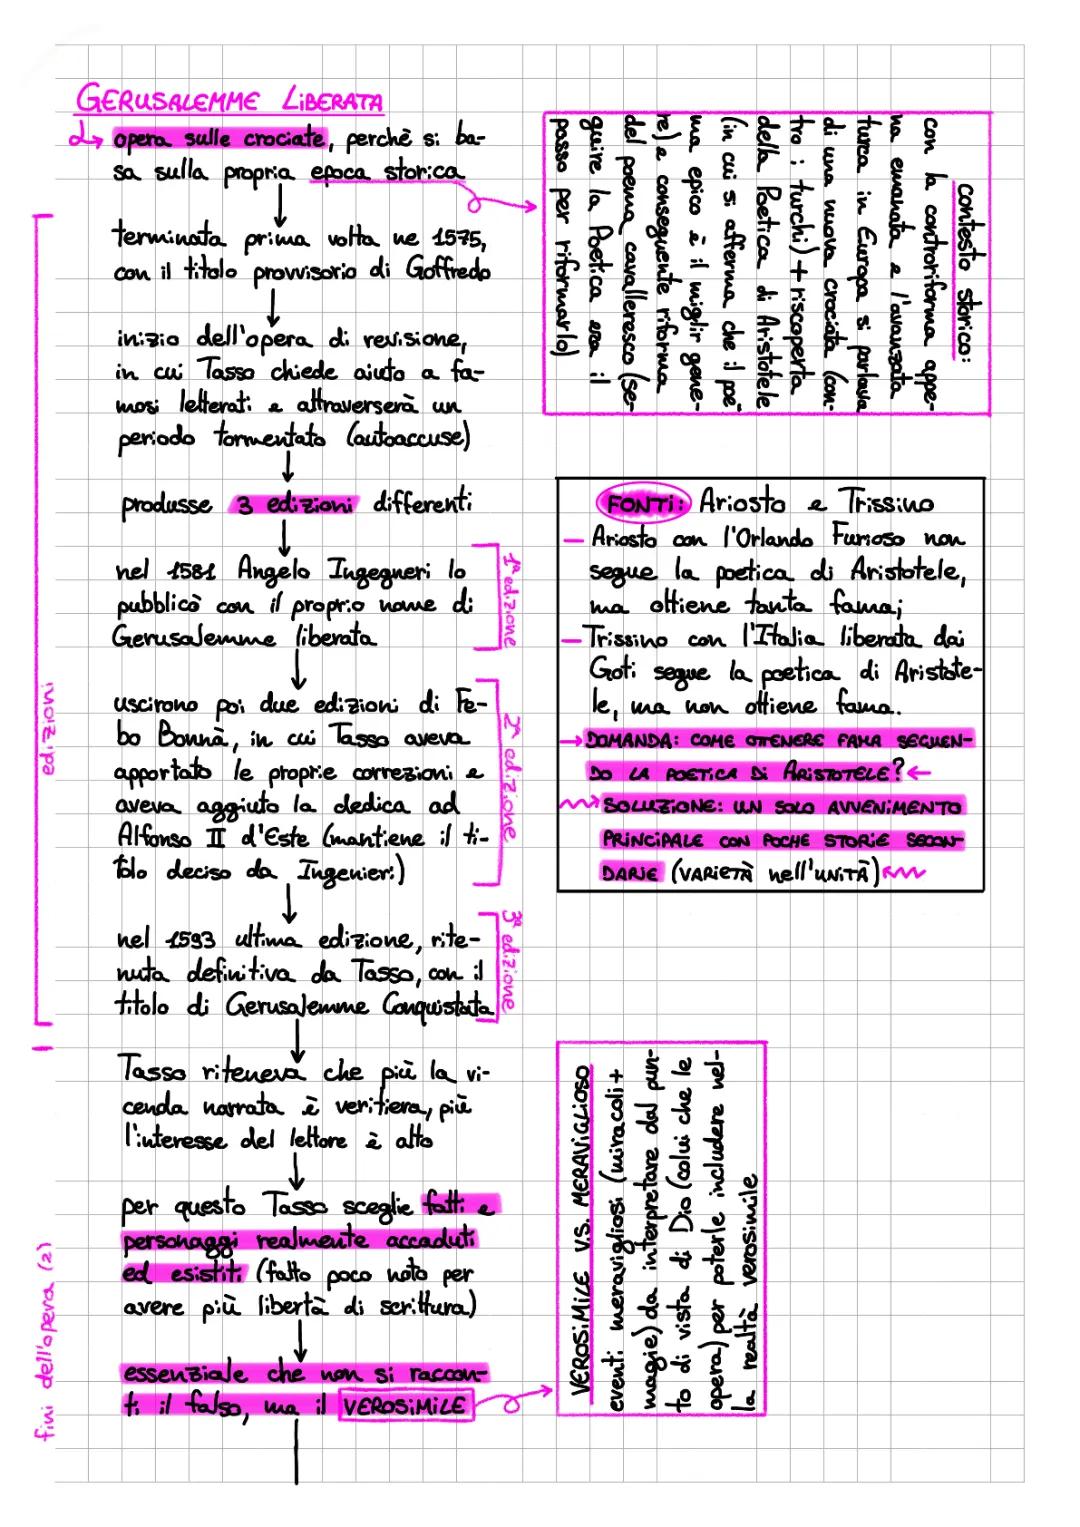 GERUSALEMME LIBERATA
opera sulle crociate, perchè si ba-
sa sulla propria epoca storica
terminata prima volta ne 1575,
con il titolo provvisorio di Goffredo
inizio dell'opera di revisione,
in cui Tasso chiede aiuto a fa-
mosi letterati e attraverserà un
periodo tormentato (autoaccuse)
produsse 3 edizioni differenti
nel 1581 Angelo Ingegneri lo
pubblicò con il proprio nome di
Gerusalemme liberata
1ª edizione
uscirono poi due edizioni di Fe-
bo Bonnà, in cui Tasso aveva
apportato le proprie correzioni e
aveva aggiuto la dedica ad
Alfonso II d'Este (mantiene il ti-
tolo deciso da Ingenieri)
2ª edizione
nel 1593 ultima edizione, rite-
nuta definitiva da Tasso, con il
titolo di Gerusalemme Conquistata
3ª edizione
edizioni
Tasso riteneva che più la vi-
cenda narrata è veritiera, più
l'interesse del lettore è alto
per questo Tasso sceglie fatti e
personaggi realmente accaduti
ed esistiti (fatto poco noto per
avere più libertà di scrittura)
essenziale che non si raccon-
ti il falso, ma il VEROSIMILE
fini dell'opera (2)
contesto storico:
con la controriforma appe-
na emanata e l'avanzata
turca in Europa si parlava
di una nuova crociata (con-
tro i turchi) + riscoperta
della Poetica di Aristotele
(in cui si afferma che il poe
ma epico è il miglir gene-
re) e conseguente riforma
del poema cavalleresco (se-
guire la Poetica era il
passo per riformarlo)
FONTI: Ariosto e Trissino
- Ariosto con l'Orlando Furioso non
segue la poetica di Aristotele,
ma ottiene tanta fama;
- Trissino con l'Italia liberata dai
Goti segue la poetica di Aristote-
le, ma non ottiene fama.
→ DOMANDA: COME OTTENERE FAMA SEGUEN-
DO LA POETICA DI ARISTOTELE? ←
SOLUZIONE: UN SOLO AVVENIMENTO
PRINCIPALE CON POCHE STORIE SECON-
DARIE (VARIETÀ nell'UNITÀ)
VEROSIMILE V.S. MERAVIGLIOSO
eventi meravigliosi (miracoli +
magie) da interpretare dal pun-
to di vista di Dio (colui che le
opera) per poterle includere nel-
la realtà verosimile